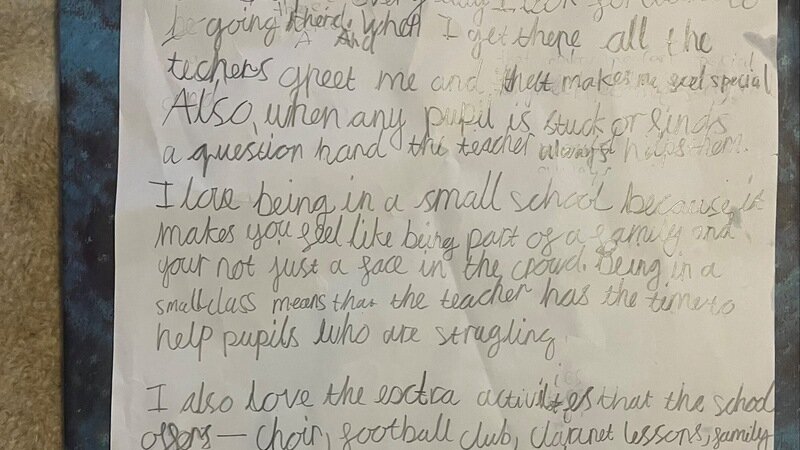 every day I look forward to
be going there. And when I get there all the
techers greet me and that makes me feel special
Also, when any pupil is stuck or finds
a question hard the teacher always helps them.
I love being in a small school because it
makes you feel like being part of a family and
your not just a face in the crowd. Being in a
small class means that the teacher has the time to
help pupils who are strugling.
I also love the esctra activities that the school
offers — choir, football club, clarinet lessons, family